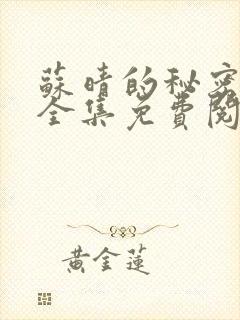 蘇晴的秘密
全集免費閱
黃金蓮